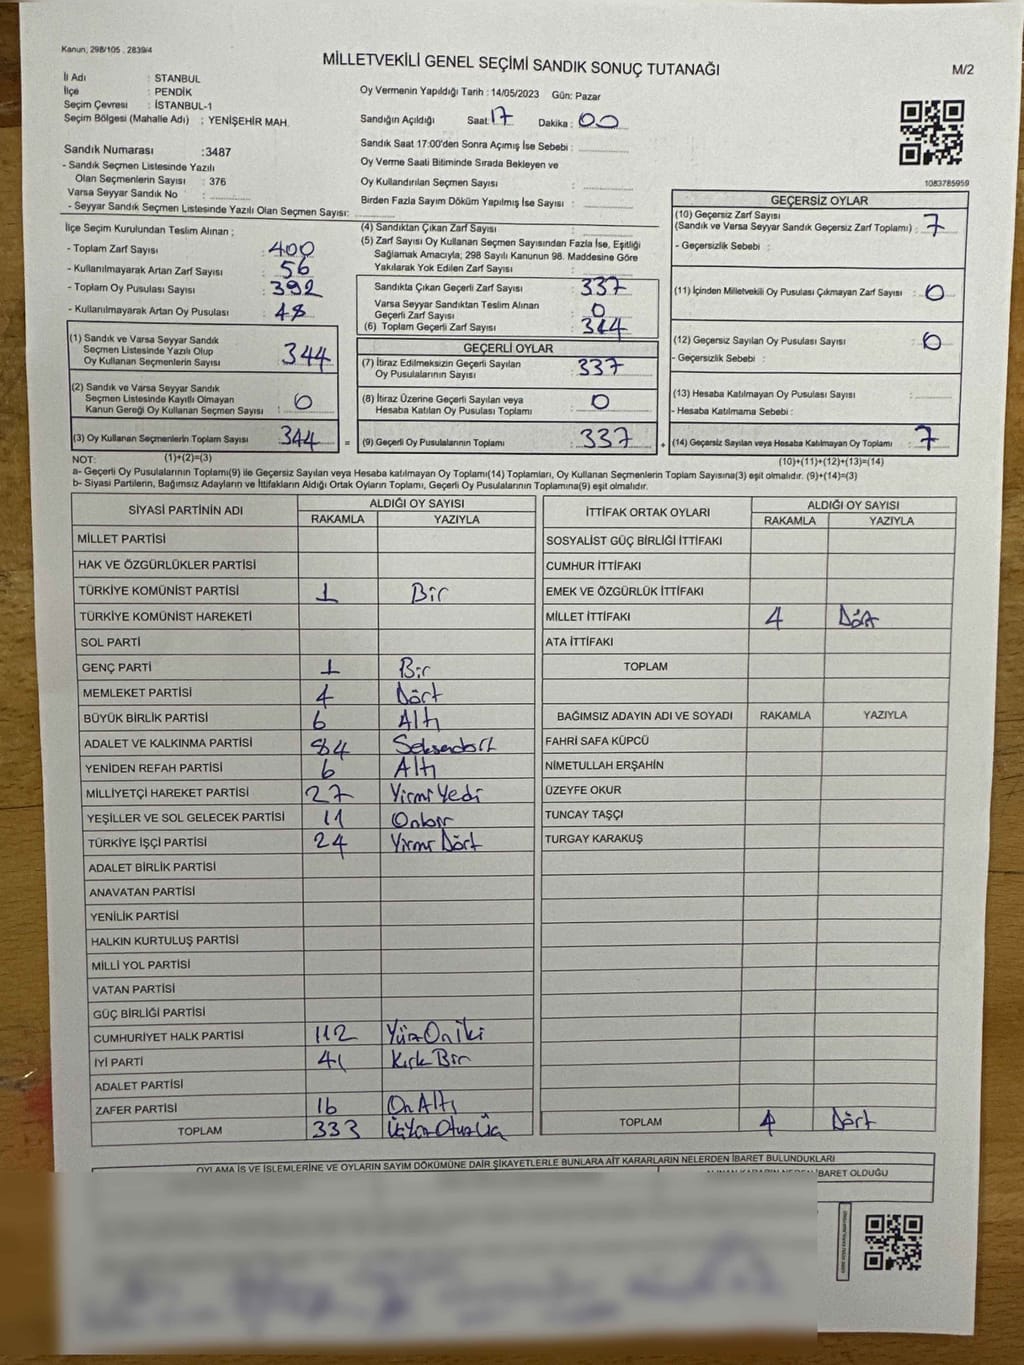 Kanun, 298/105 . 2839/4
MİLLETVEKİLİ GENEL SEÇİMİ SANDIK SONUÇ TUTANAĞI
M/2
İl Adı : STANBUL
İlçe : PENDİK
Seçim Çevresi : İSTANBUL-1
Seçim Bölgesi (Mahalle Adı) : YENİŞEHİR MAH.
Sandık Numarası :3487
- Sandık Seçmen Listesinde Yazılı
Olan Seçmenlerin Sayısı : 376
Varsa Seyyar Sandık No :
- Seyyar Sandık Seçmen Listesinde Yazılı Olan Seçmen Sayısı:
Oy Vermenin Yapıldığı Tarih : 14/05/2023 Gün: Pazar
Sandığın Açıldığı Saat: 17 Dakika : 00
Sandık Saat 17:00'den Sonra Açımış İse Sebebi :
Oy Verme Saati Bitiminde Sırada Bekleyen ve
Oy Kullandırılan Seçmen Sayısı :
Birden Fazla Sayım Döküm Yapılmış İse Sayısı :
1083785959
İlçe Seçim Kurulundan Teslim Alınan ;
- Toplam Zarf Sayısı : 400
- Kullanılmayarak Artan Zarf Sayısı : 56
- Toplam Oy Pusulası Sayısı : 392
- Kullanılmayarak Artan Oy Pusulası : 48
(1) Sandık ve Varsa Seyyar Sandık
Seçmen Listesinde Yazılı Olup
Oy Kullanan Seçmenlerin Sayısı : 344
(2) Sandık ve Varsa Seyyar Sandık
Seçmen Listesinde Kayıtlı Olmayan
Kanun Gereği Oy Kullanan Seçmen Sayısı : 0
(3) Oy Kullanan Seçmenlerin Toplam Sayısı : 344 =
(4) Sandıktan Çıkan Zarf Sayısı :
(5) Zarf Sayısı Oy Kullanan Seçmen Sayısından Fazla İse, Eşitliği
Sağlamak Amacıyla; 298 Sayılı Kanunun 98. Maddesine Göre
Yakılarak Yok Edilen Zarf Sayısı :
Sandıkta Çıkan Geçerli Zarf Sayısı : 337
Varsa Seyyar Sandıktan Teslim Alınan
Geçerli Zarf Sayısı : 0
(6) Toplam Geçerli Zarf Sayısı : 344
GEÇERLİ OYLAR
(7) İtiraz Edilmeksizin Geçerli Sayılan
Oy Pusulalarının Sayısı : 337
(8) İtiraz Üzerine Geçerli Sayılan veya
Hesaba Katılan Oy Pusulası Toplamı : 0
(9) Geçerli Oy Pusulalarının Toplamı : 337 +
GEÇERSİZ OYLAR
(10) Geçersiz Zarf Sayısı
(Sandık ve Varsa Seyyar Sandık Geçersiz Zarf Toplamı) : 7
- Geçersizlik Sebebi :
(11) İçinden Milletvekili Oy Pusulası Çıkmayan Zarf Sayısı : 0
(12) Geçersiz Sayılan Oy Pusulası Sayısı : 0
- Geçersizlik Sebebi :
(13) Hesaba Katılmayan Oy Pusulası Sayısı :
- Hesaba Katılmama Sebebi :
(14) Geçersiz Sayılan veya Hesaba Katılmayan Oy Toplamı : 7
NOT: (1)+(2)=(3) (10)+(11)+(12)+(13)=(14)
a- Geçerli Oy Pusulalarının Toplamı(9) ile Geçersiz Sayılan veya Hesaba katılmayan Oy Toplamı(14) Toplamları, Oy Kullanan Seçmenlerin Toplam Sayısına(3) eşit olmalıdır. (9)+(14)=(3)
b- Siyasi Partilerin, Bağımsız Adayların ve İttifakların Aldığı Ortak Oyların Toplamı, Geçerli Oy Pusulalarının Toplamına(9) eşit olmalıdır.
SİYASİ PARTİNİN ADI ALDIĞI OY SAYISI
RAKAMLA YAZIYLA
MİLLET PARTİSİ
HAK VE ÖZGÜRLÜKLER PARTİSİ
TÜRKİYE KOMÜNİST PARTİSİ 1 Bir
TÜRKİYE KOMÜNİST HAREKETİ
SOL PARTİ
GENÇ PARTİ 1 Bir
MEMLEKET PARTİSİ 4 Dört
BÜYÜK BİRLİK PARTİSİ 6 Altı
ADALET VE KALKINMA PARTİSİ 84 Seksendört
YENİDEN REFAH PARTİSİ 6 Altı
MİLLİYETÇİ HAREKET PARTİSİ 27 Yirmi Yedi
YEŞİLLER VE SOL GELECEK PARTİSİ 11 Onbir
TÜRKİYE İŞÇİ PARTİSİ 24 Yirmi Dört
ADALET BİRLİK PARTİSİ
ANAVATAN PARTİSİ
YENİLİK PARTİSİ
HALKIN KURTULUŞ PARTİSİ
MİLLİ YOL PARTİSİ
VATAN PARTİSİ
GÜÇ BİRLİĞİ PARTİSİ
CUMHURİYET HALK PARTİSİ 112 Yüz On iki
İYİ PARTİ 41 Kırk Bir
ADALET PARTİSİ
ZAFER PARTİSİ 16 On Altı
TOPLAM 333 ÜçYüz Otuz Üç
İTTİFAK ORTAK OYLARI ALDIĞI OY SAYISI
RAKAMLA YAZIYLA
SOSYALİST GÜÇ BİRLİĞİ İTTİFAKI
CUMHUR İTTİFAKI
EMEK VE ÖZGÜRLÜK İTTİFAKI
MİLLET İTTİFAKI 4 Dört
ATA İTTİFAKI
TOPLAM
BAĞIMSIZ ADAYIN ADI VE SOYADI RAKAMLA YAZIYLA
FAHRİ SAFA KÜPCÜ
NİMETULLAH ERŞAHİN
ÜZEYFE OKUR
TUNCAY TAŞÇI
TURGAY KARAKUŞ
TOPLAM 4 Dört
OYLAMA İŞ VE İŞLEMLERİNE VE OYLARIN SAYIM DÖKÜMÜNE DAİR ŞİKAYETLERLE BUNLARA AİT KARARLARIN NELERDEN İBARET BULUNDUKLARI
ALINAN KARARIN NEDEN İBARET OLDUĞU